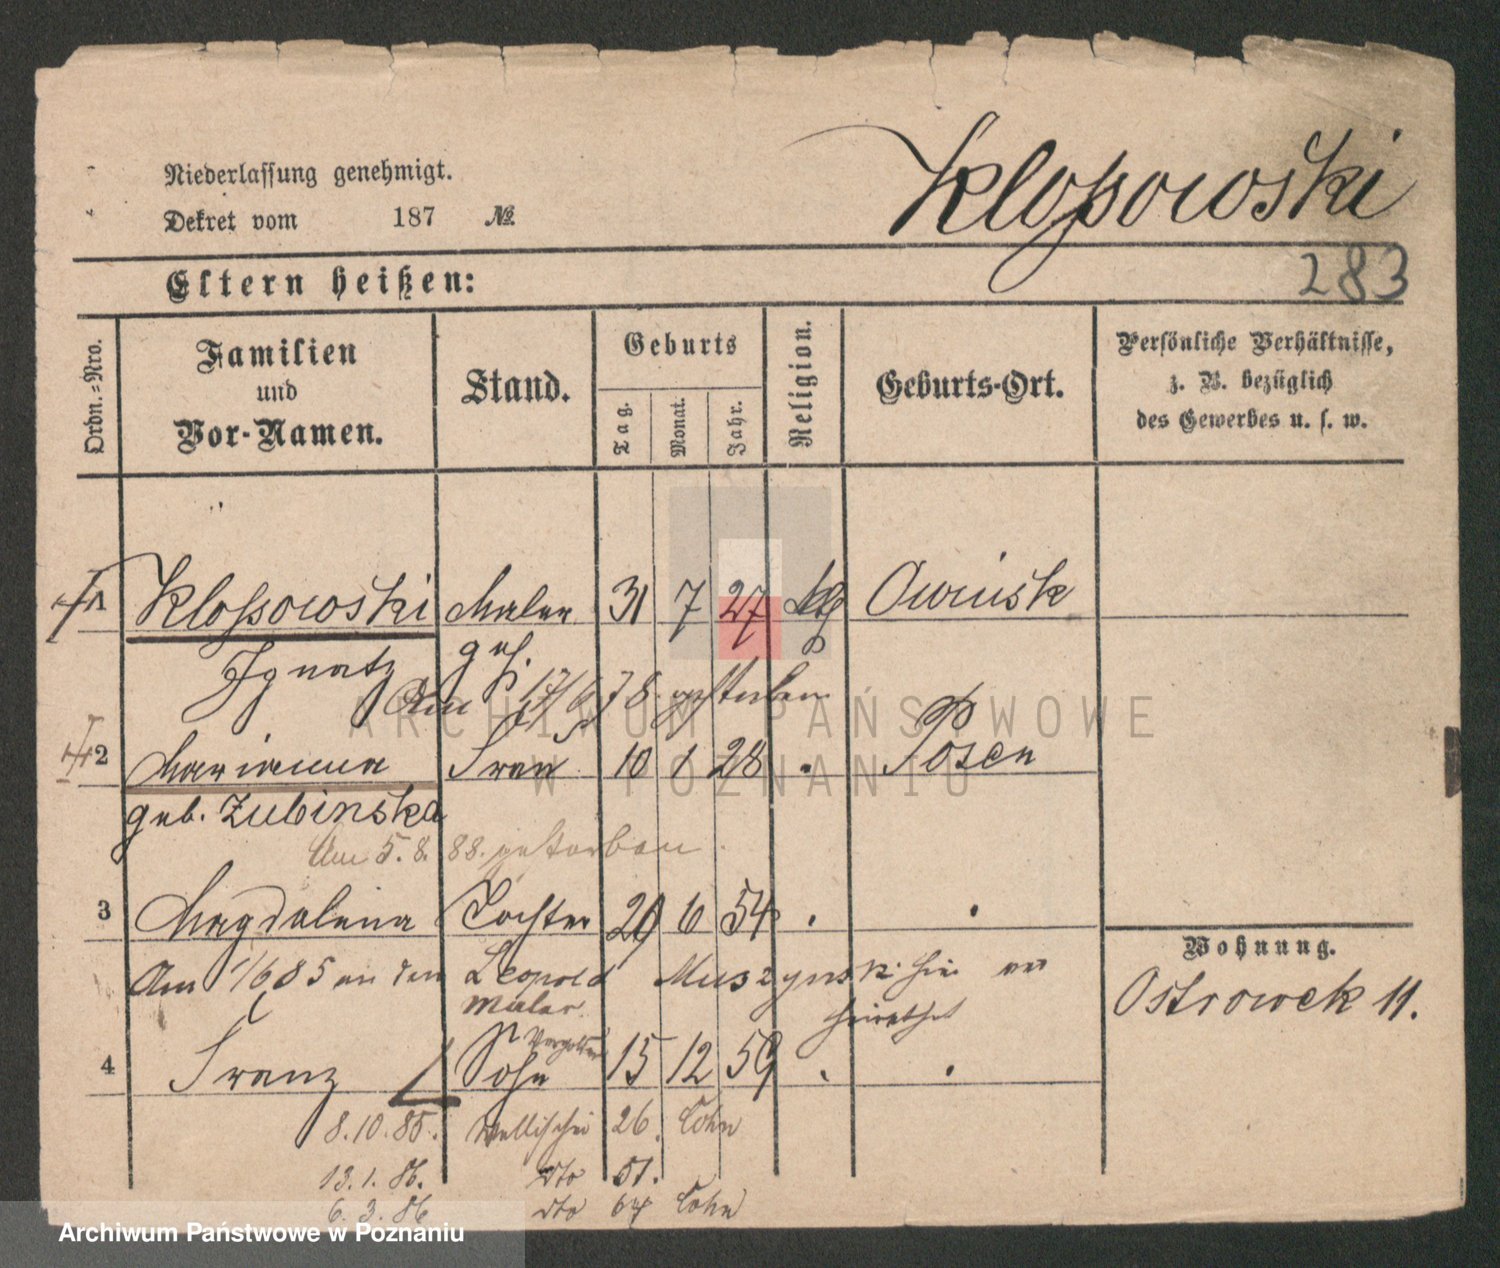 Niederlassung genehmigt.
Dekret vom 187 №
Kloßowski
283
Eltern heißen:
Ordn.-Nro.
Familien
und
Vor-Namen.
Stand.
Geburts
Tag.
Monat.
Jahr.
Religion.
Geburts-Ort.
Persönliche Verhältnisse,
z. B. bezüglich
des Gewerbes u. s. w.
1 Kloßowski Maler 31 7 27 Owinsk
Ignatz
Am 17/6 78 gestorben
2 Marianna Frau 10 1 28 . Posen
geb. Zubinska
Am 5. 8. 88. gestorben.
3 Magdalena Tochter 29 6 54 . .
Am 1/6 85 an den Leopold Muszynski hier ver
Maler heirathet
4 Franz Sohn 15 12 59 . .
8. 10. 85. Wallischei 26. Cohn
13. 1. 86. dto 51.
6. 3. 86 dto 64 Cohn
Wohnung.
Ostrowek 11.
ARCHIWUM PAŃSTWOWE
W POZNANIU
Archiwum Państwowe w Poznaniu